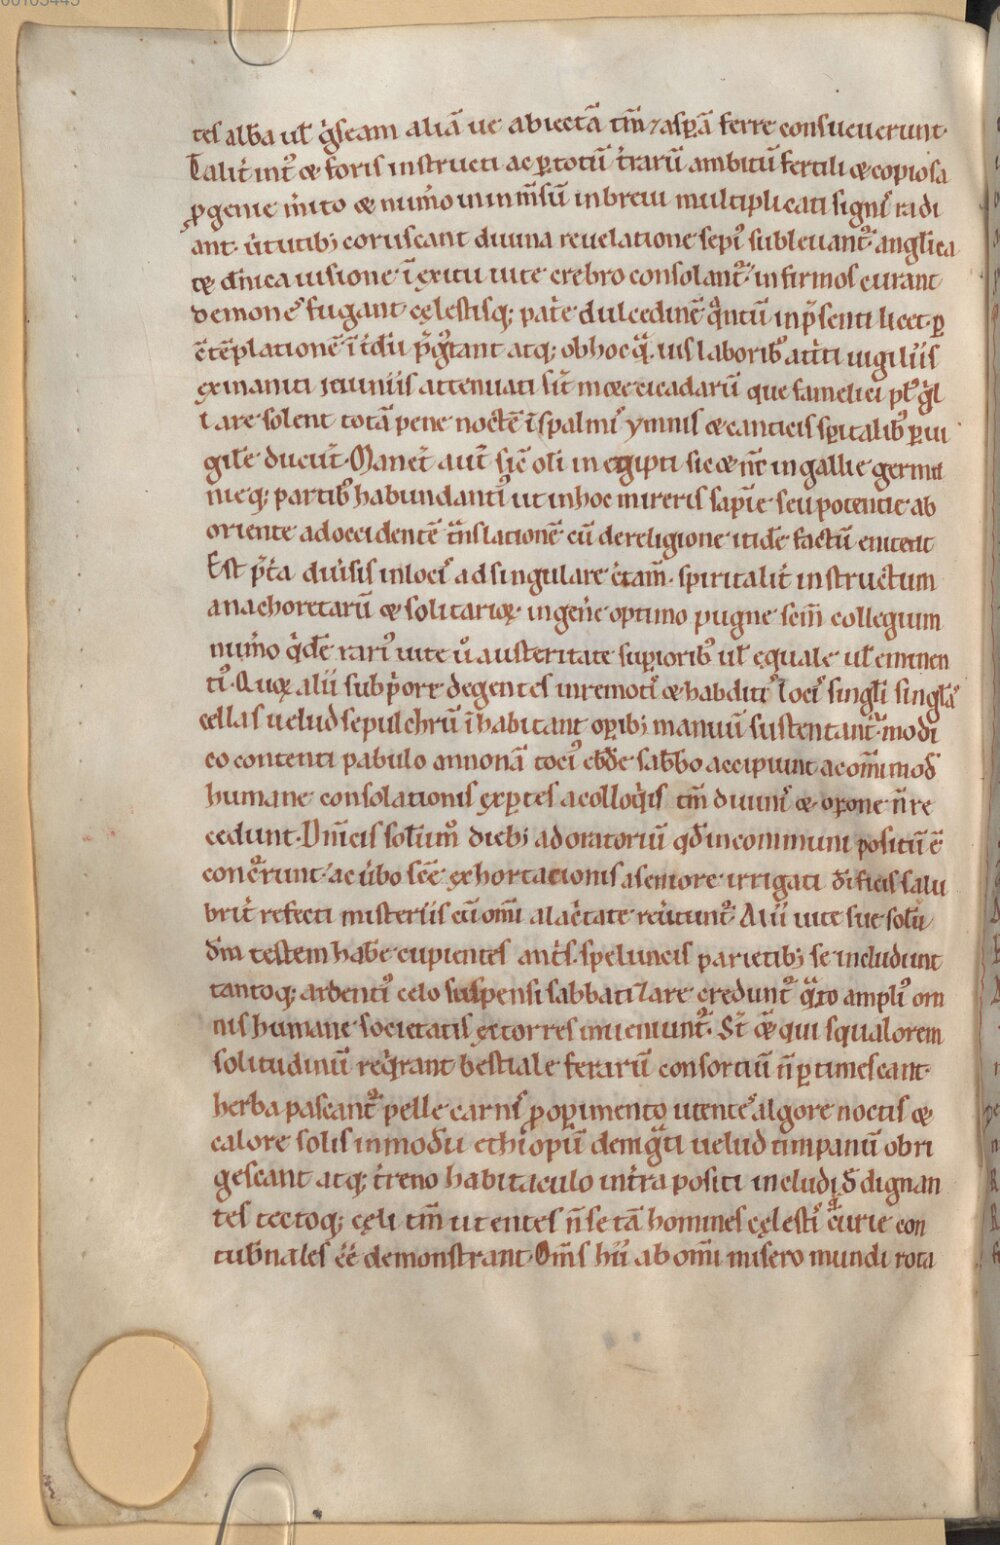 tes alba ul̅ gͥseam aliā ue abiectā tm̅ ⁊ asꝑā ferre consueuerunt·
Talit̅ int᷒ & foris instructi ac ꝑ totū t̅rarū ambitū fertili & copiosa
ꝓgenie m̅ito & num̅o in inm̅sū in breui multiplicati signis radi
ant· u̅tutib; coruscant diuina reuelatione sepi᷒ subleuant᷑ anglica
q; dn̅ica uisione ī exitu uite crebro consolant᷑ infirmos curant
demones fugant cęlestisq; patͥe dulcedinē qͣntū in p̅senti licet ꝑ
c̅tēplationē īt̅dū p̅gͧstant atq; ob hoc qͣuis laborib᷒ attͥti uigiliis
exinaniti ieiuniis attenuati sīt
lare solent totā pene noctē ī spalmis ymnis & canticis sp̅italib᷒ ꝑui
gile ducūt· Manet᷑ aut̅ sic̅ oli̅ in egipti sic & nc̅ in gallie germa
nieq; partib᷒ habundanti᷒ ut in hoc mireris sapīe seu potentie ab
oriente ad occidentē tͣnslationē cū de religione itidē factū enitent
Est p̅t̅a diu̅sis in locis ad singulare c̅tam̅· spiritalit̅ instructum
anachoretarū & solitarioꝝ in gen̅e optimo pugne sem̅ collegium
num̅o qͥdē rari᷒ uite u̅ austeritate suꝑiorib᷒ ul̅ equale ul̅ eminen
ti᷒· Quoꝝ alii sub p̅ore degentes in remotis & habditis locis singli̅ singlā̅s
cellas uelud sepulchrū īhabitant oꝑib; manuū sustentant᷑ modi
co contenti pabulo annonā toci᷒ ebdē sabbo accipiunt ac om̅imod̅
humane consolationis exꝑtes a colloqͥis tm̅ diuinis & or̅one n̅ re
cedunt· Dn̅icis solum̅o dieb; ad oratoriū qd̅ in communi positū ē
concͥrunt· ac u̅bo sc̅e exhortacionis a seniore irrigati d̅ificis salu
brit̅ refecti misteriis cū om̅i alac̅tate reu̅tunt᷑ Alii uite sue solū
dm̅ testem habe̅ cupientes antͥs· speluncis parietib; se includunt
tantoq; ardenti᷒ celo suspensi sabbatizare credunt᷑ qͣnto ampli᷒ om
nis humane societatis extorres inueniunt᷑· St̅ & qui squalorem
solitudinū reqͥrant bestiale ferarū consorciū n̅ ꝑtimescant·
herba pascant᷑ pelle carnis ꝓ oꝑimento utentes algore noctis &
calore solis in modū ethiopū denigͣti uelud timpanū obri
gescant atq; t̅reno habitaculo intͣ positi includi d̅dignan
tes tectoq; cęli tm̅ utentes n̅ se tā homines qͣ cęlestis curie con
tub̅nales ee̅ demonstrant· Om̅s hii ab om̅i misero mundi rota